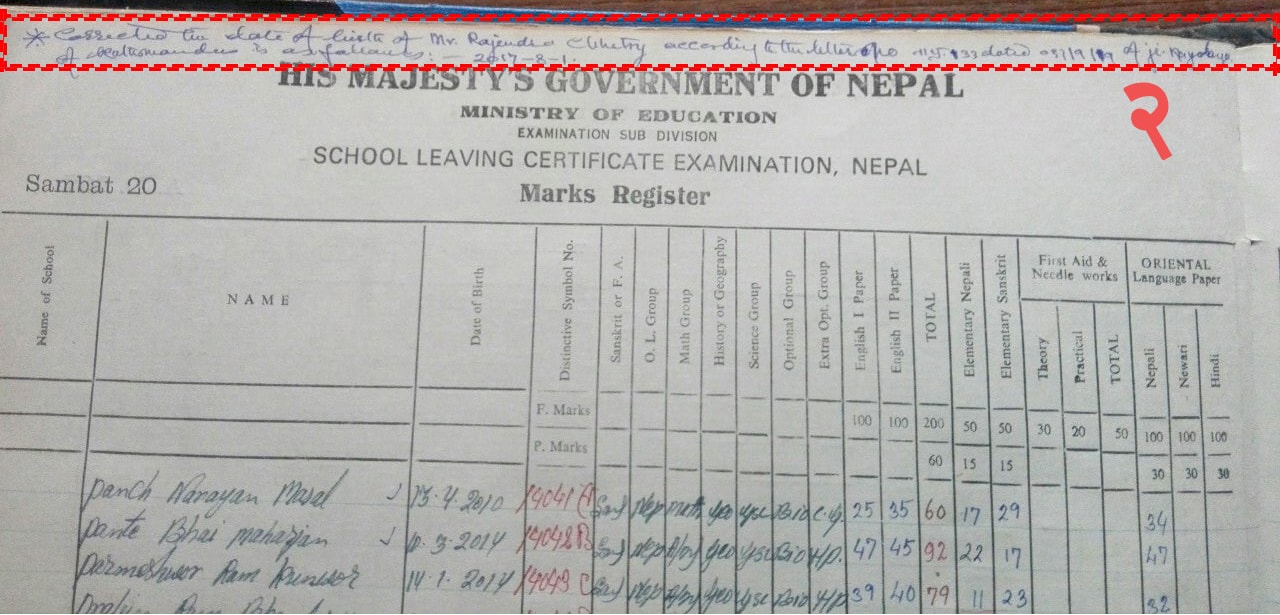 * Corrected the date of birth of Mr. Rajendra Chhetry according to the letter of no dated of
of Kathmandu is as follows: - 2017-8-1.
HIS MAJESTY'S GOVERNMENT OF NEPAL
२
MINISTRY OF EDUCATION
EXAMINATION SUB DIVISION
SCHOOL LEAVING CERTIFICATE EXAMINATION, NEPAL
Sambat 20
Marks Register
Name of School NAME Date of Birth Distinctive Symbol No. Sanskrit or F. A. O. L. Group Math Group History or Geography Science Group Optional Group Extra Opt. Group English I Paper English II Paper TOTAL Elementary Nepali Elementary Sanskrit
First Aid & Needle works Theory Practical TOTAL
ORIENTAL Language Paper Nepali Newari Hindi
F. Marks 100 100 200 50 50 30 20 50 100 100 100
P. Marks 60 15 15 30 30 30
Panch Narayan 13.4.2010 14041 A San Nep math geo Bio 25 35 60 17 29 34
Pante Bhai maharjan 3.2014 14042 B San Nep geo Bio 47 45 92 22 17 47
Parmeshwor Ram 14.1.2014 14043 C San Nep geo Bio 39 40 79 11 23 32
Ram